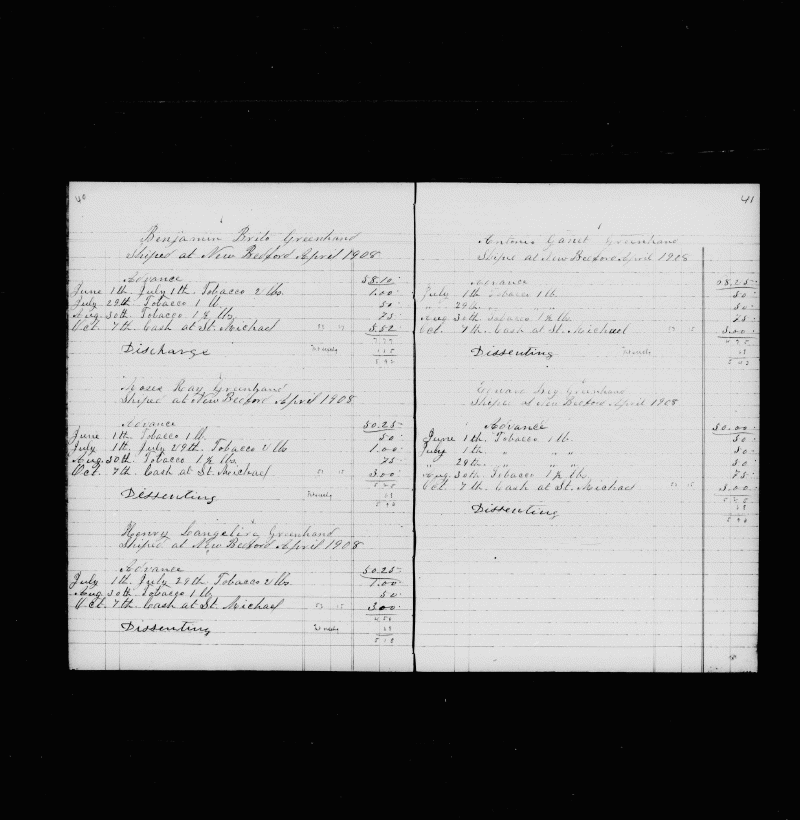 40
Benjamin Brito Greenhand
Shiped at New Bedford April 1908
Advance 58.10
June 1th. July 1th. Tobacco 2 lbs. 1.00
July 29th. Tobacco 1 lb. 50
Aug. 30th. Tobacco 1½ lbs. 75
Oct. 7th. Cash at St. Michael 5.52
Discharge
Moses Ray Greenhand
Shiped at New Bedford April 1908
Advance 50.25
June 1th. Tobacco 1 lb. 50
July 1th. July 29th. Tobacco 2 lb 1.00
Aug. 30th. Tobacco 1½ lbs. 75
Oct. 7th. Cash at St. Michael 3.00
Dissenting
Henry Greenhand
Shiped at New Bedford April 1908
Advance 50.25
July 1th. July 29th. Tobacco 2 lbs. 1.00
Aug 30th. Tobacco 1 lb 50
Oct. 7th. Cash at St. Michael 3.00
Dissenting
41
Antonio Greenhand
Shiped at New Bedford April 1908
Advance 58.25
July 1th. Tobacco 1 lb. 50
" 29th. " " " 50
Aug. 30th. Tobacco 1½ lb. 75
Oct. 7th. Cash at St. Michael 3.00
Dissenting
Greenhand
Shiped at New Bedford April 1908
Advance 50.00
June 1th. Tobacco 1 lb. 50
July 1th " " " 50
" 29th. " " " 50
Aug. 30th. Tobacco 1½ lb. 75
Oct. 7th. Cash at St. Michael 3.00
Dissenting